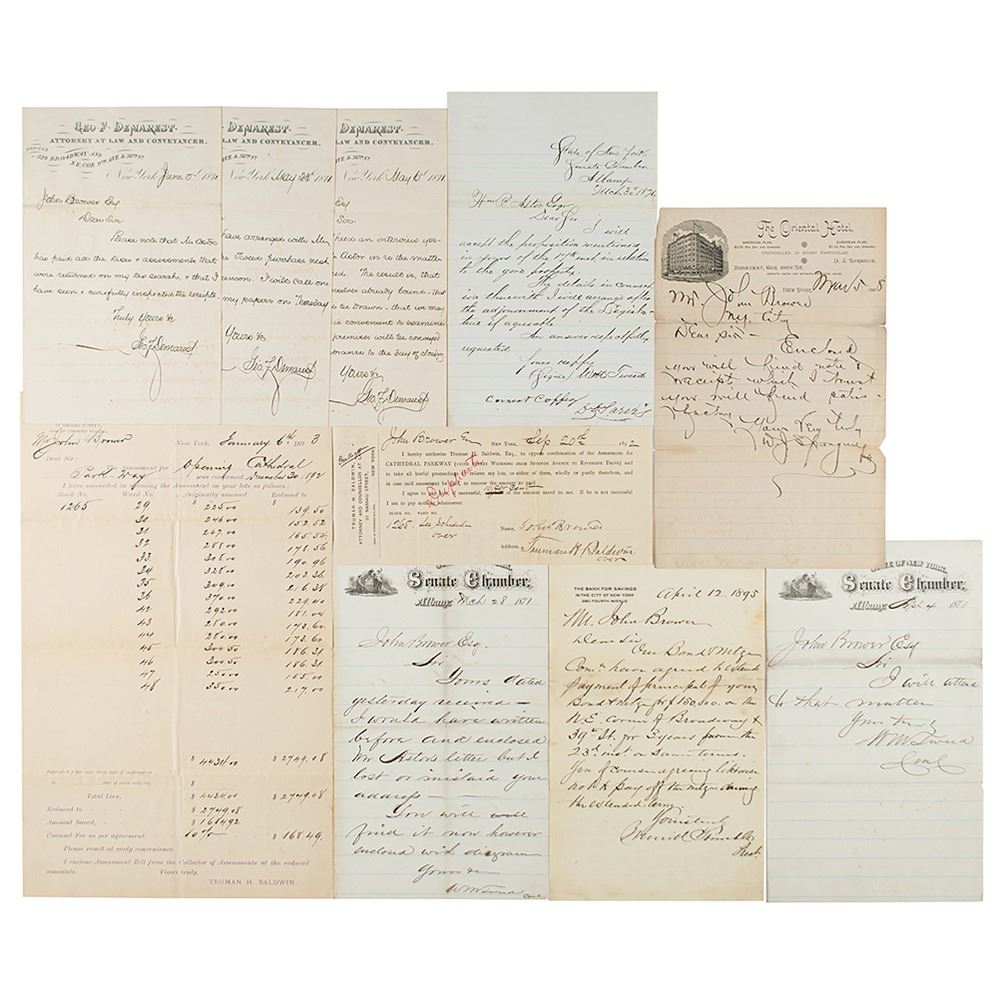 GEO. F. DEMAREST.
ATTORNEY AT LAW AND CONVEYANCER.
OFFICES
229 BROADWAY AND
New York June 5th 1871
John Brower Esq
Dear Sir.
Please note that Mr Astor
has paid all the taxes & assessments that
were returned on my tax search & that I
have seen & carefully inspected the receipts.
Truly Yours &c
Geo. F. Demarest
DEMAREST.
LAW AND CONVEYANCER.
New York May 1871
have arranged with Mr
I will call on
my papers on Thursday
Yours &c
Geo. F. Demarest
DEMAREST.
LAW AND CONVEYANCER.
New York May 1871
Esq
Sir.
had an interview yes-
Astor in re the matter
The result is, that
already bound - that
be Drawn - that we may
is convenient to examine
premises will be conveyed
to the day of closing
Yours &c
Geo. F. Demarest
State of New York
Senate Chamber
Albany
Mch. 30 1871
Dear Sir
I will
accept the proposition mentioned
in yours of the 17th inst. in relation
to the 90th property.
The details in connec-
tion therewith I will arrange after
the adjournment of the Legisla-
ture if agreeable
An answer respectfully
requested
Yours respy
(Signed) Wm M Tweed
Correct Copy
The Oriental Hotel.
AMERICAN PLAN,
EUROPEAN PLAN,
UNEXCELLED IN EVERY PARTICULAR.
BROADWAY, COR. 39TH ST.
D. J. SPRAGUE.
NEW YORK,
Mr. John Brower
N.Y. City
Dear Sir -
Enclosed
you will find note &
receipts which I trust
you will find satis-
factory
Yours Very Truly
D. J. Sprague
Mr John Brower
New York, January 6th 1893
Dear Sir:
The Assessment for Opening Cathedral
Park Way was confirmed December 30 1892
I have succeeded in reducing the Assessment on your lots as follows:
Block No. Ward No. Originally assessed Reduced to
1265 29 $ 225.00 $ 139.50
30 246.00 152.52
31 267.00 165.54
32 288.00 178.56
33 308.00 190.96
34 328.00 203.36
35 349.00 216.38
36 370.00 229.40
42 292.00 181.04
43 280.00 173.60
44 280.00 173.60
45 300.50 186.31
46 300.50 186.31
47 250.00 155.00
48 350.00 217.00
$ 4434.00 $ 2749.08
Total Lien, $ 4434.00 $ 2749.08
Reduced to $ 2749.08
Amount Saved, $ 1684.92
Counsel Fee as per agreement, 10% $ 168.49
Please remit at early convenience.
I enclose Assessment Bill from the Collector of Assessments at the reduced
amounts. Yours truly,
TRUMAN H. BALDWIN.
TRUMAN BALDWIN,
ATTORNEY AND COUNSELLOR AT LAW
31 NASSAU STREET, NEW YORK
John Brower Esq New York, Sep 20th 1892
I hereby authorize Truman H. Baldwin, Esq., to oppose confirmation of the Assessment for
CATHEDRAL PARKWAY (110TH STREET WIDENING FROM SEVENTH AVENUE TO RIVERSIDE DRIVE) and
to take all lawful proceedings to relieve my lots, or either of them, wholly or partly therefrom, and
in case said assessment be paid, to recover the amount so paid.
I agree to pay him, if successful, 10 per Cent of the amount saved to me. If he is not successful
I am to pay nothing whatever.
Duplicate
BLOCK NO. WARD NO.
1265 See Schedule
over
Name, John Brower
Address, Truman H Baldwin
over
STATE OF NEW YORK,
Senate Chamber,
Albany Mch 28 1871
John Brower Esq.
Sir
Yours dated
yesterday received -
I would have written
before and enclosed
Mr Astors letter but I
lost or mislaid your
address -
You will
find it now however
enclosed with diagram
Yours &c
Wm M Tweed
THE BANK FOR SAVINGS
IN THE CITY OF NEW YORK
280 FOURTH AVENUE
April 12 1895
Mr. John Brower
Dear Sir
Our Bond & Mtge
Come have agreed to extend
payment of principal of your
Bond & mtge of $150,000. on the
N.E. Corner of Broadway &
39th St. for 3 years from the
23d inst on same terms.
You of course agreeing
not to pay off the mtge during
the extended term
Yours truly
Merritt Trimble
Prest
STATE OF NEW YORK,
Senate Chamber,
Albany 4 1871
John Brower Esq
Sir
I will attend
to that matter
Yours truly
Wm M Tweed